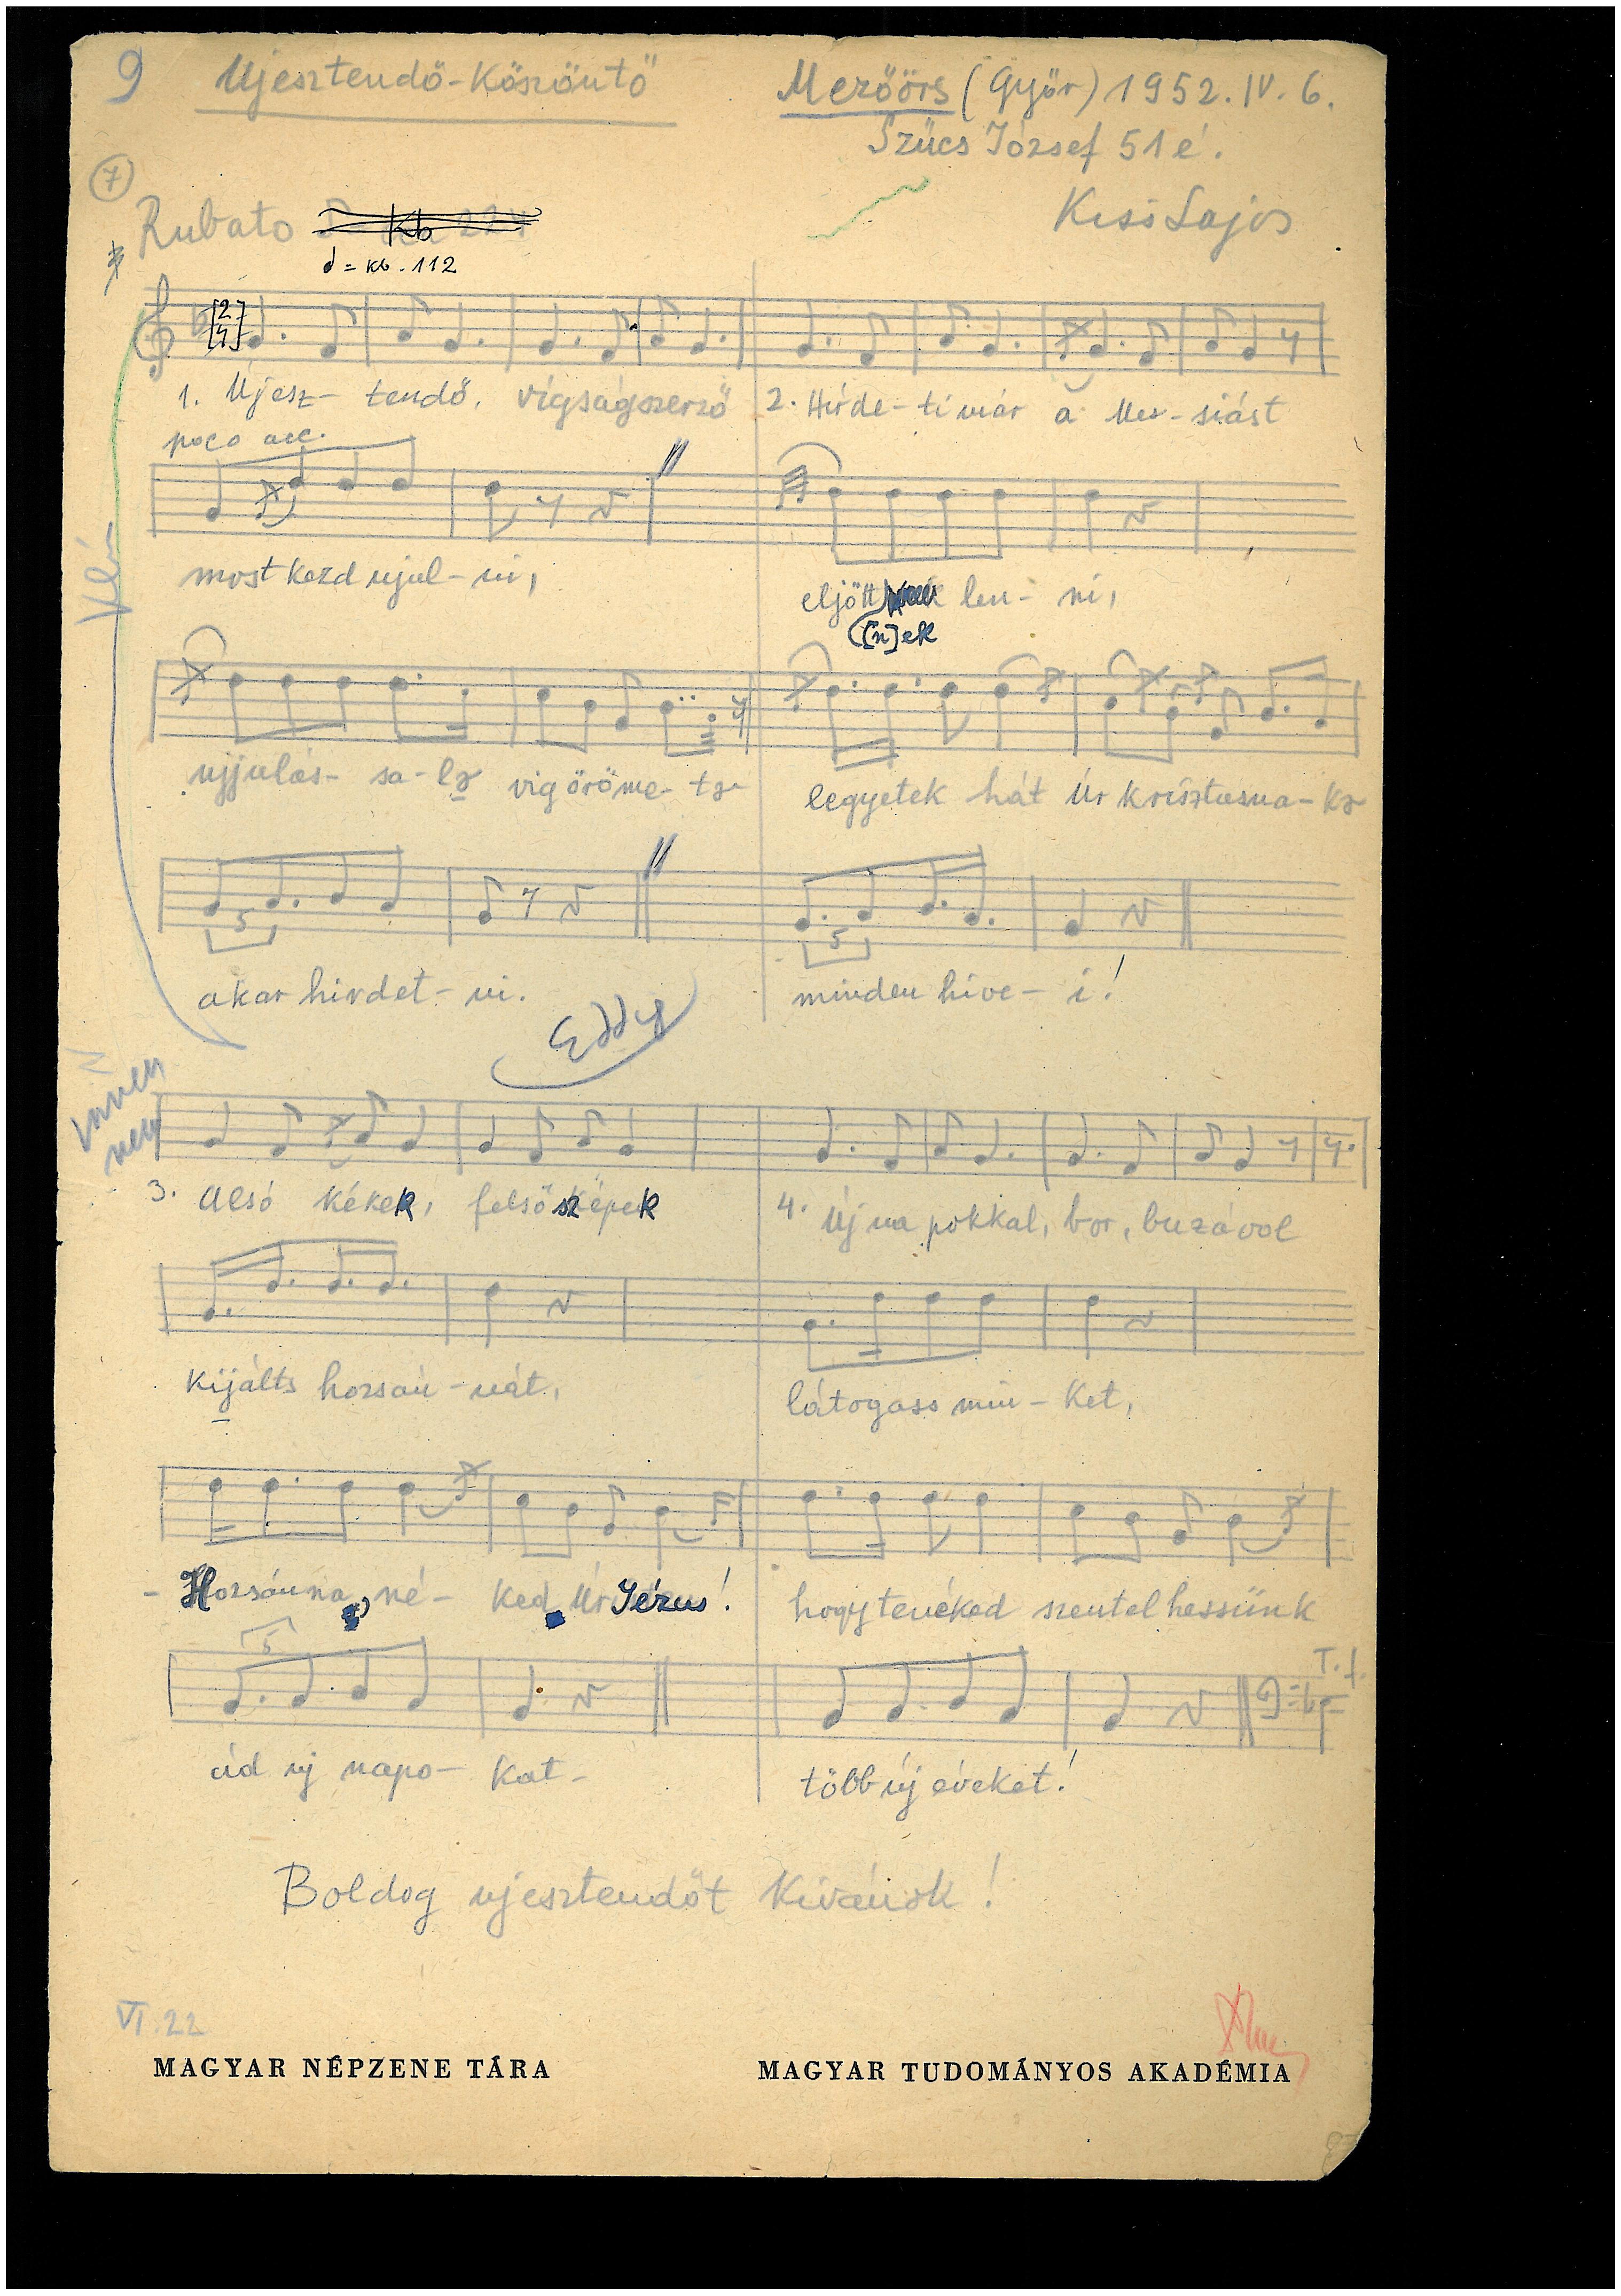 9 Ujesztendő-Köszöntő Mezőörs (Győr) 1952. IV. 6.
Szücs József 51 é.
7
Rubato Kiss Lajos
♩ = kb. 112
2/4
1. Újesz- tendő, vígságszerző 2. Hirde- ti már a Mes- siást
poco acc.
most kezd ujul- ni, eljött len- ni,
[n]ek
ujjulás- sa- lə vig öröme- tə legyetek hát Úr Krisztusna- kə
5 5
akar hirdet- ni. minden hive- i!
Eddig
Innen
nem
3. Alsó kékek, felső szképek 4. Új napokkal, bor, buzával
Kijálts hozsán- nát, látogass min- ket,
- Hozsánna, né- ked Úr Jézus! hogy tenéked szentelhessünk
5
T. f.
úd uj napo- kat- több új éveket!
Boldog ujesztendőt kívánok!
VI. 22
MAGYAR NÉPZENE TÁRA MAGYAR TUDOMÁNYOS AKADÉMIA